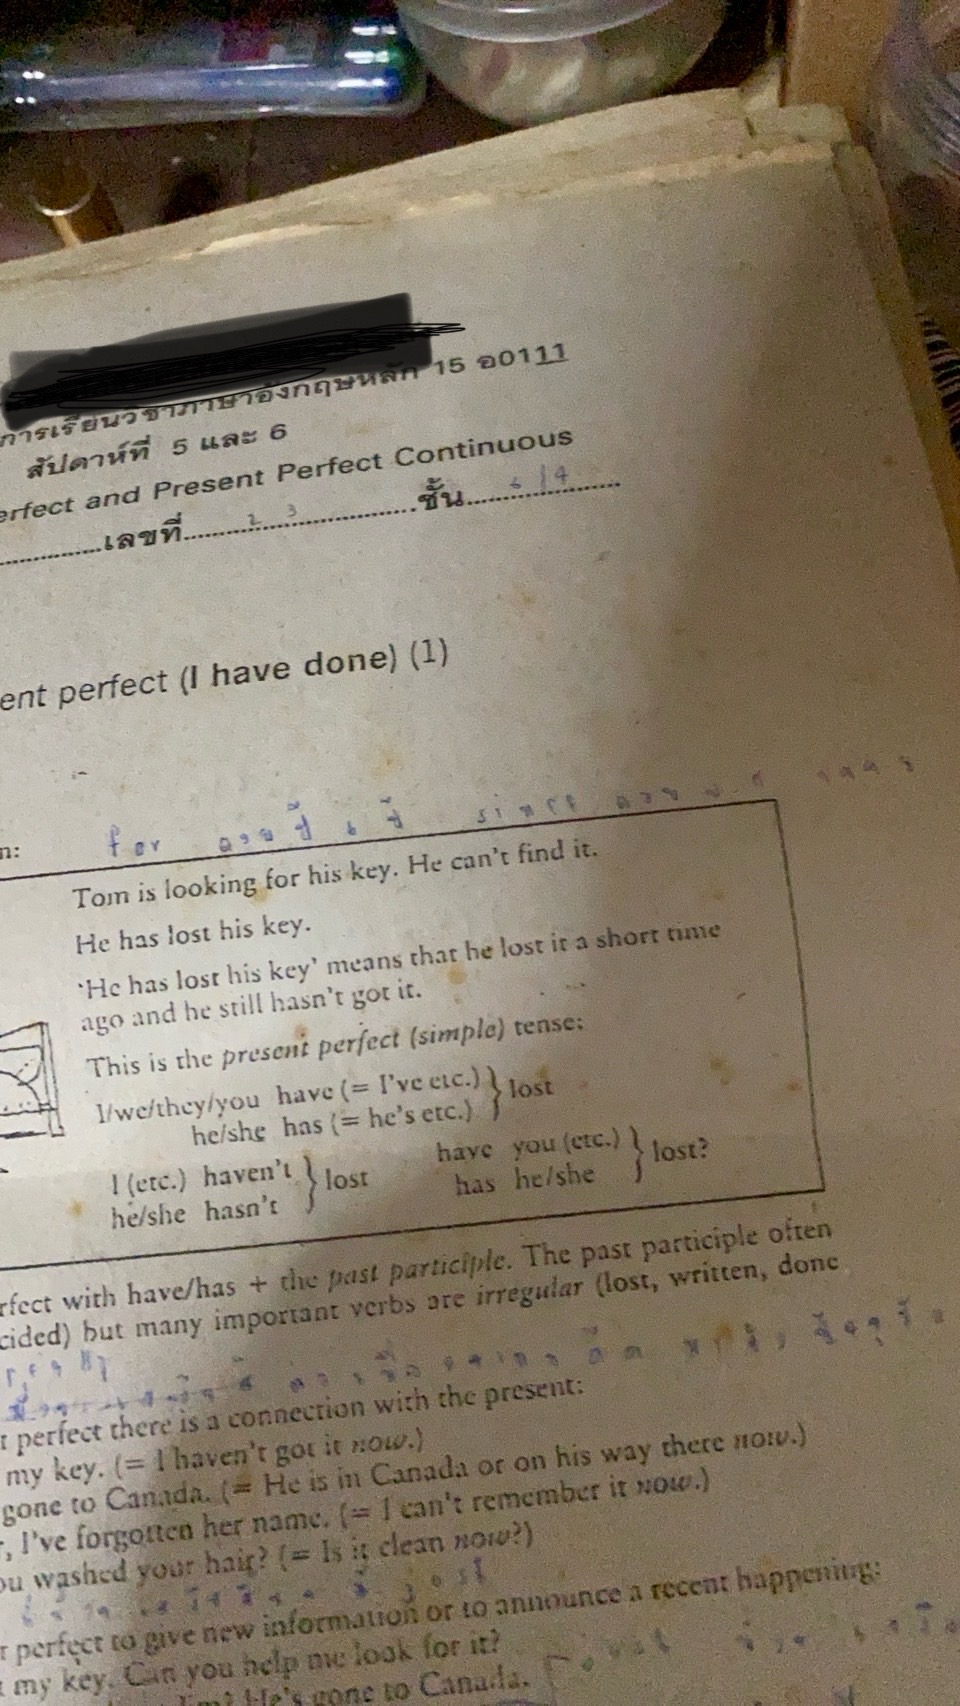 การเรียนวิชาภาษาอังกฤษหลัก 15 อ0111
สัปดาห์ที่ 5 และ 6
erfect and Present Perfect Continuous
เลขที่ 23 ชั้น 6/4
ent perfect (I have done) (1)
n:
for since
Tom is looking for his key. He can't find it.
He has lost his key.
'He has lost his key' means that he lost it a short time
ago and he still hasn't got it.
This is the present perfect (simple) tense:
I/we/they/you have (= I've etc.) } lost
he/she has (= he's etc.)
I (etc.) haven't } lost have you (etc.) } lost?
he/she hasn't has he/she
rfect with have/has + the past participle. The past participle often
cided) but many important verbs are irregular (lost, written, done
t perfect there is a connection with the present:
my key. (= I haven't got it now.)
gone to Canada. (= He is in Canada or on his way there now.)
, I've forgotten her name. (= I can't remember it now.)
ou washed your hair? (= Is it clean now?)
t perfect to give new information or to announce a recent happening:
t my key. Can you help me look for it?
He's gone to Canada.